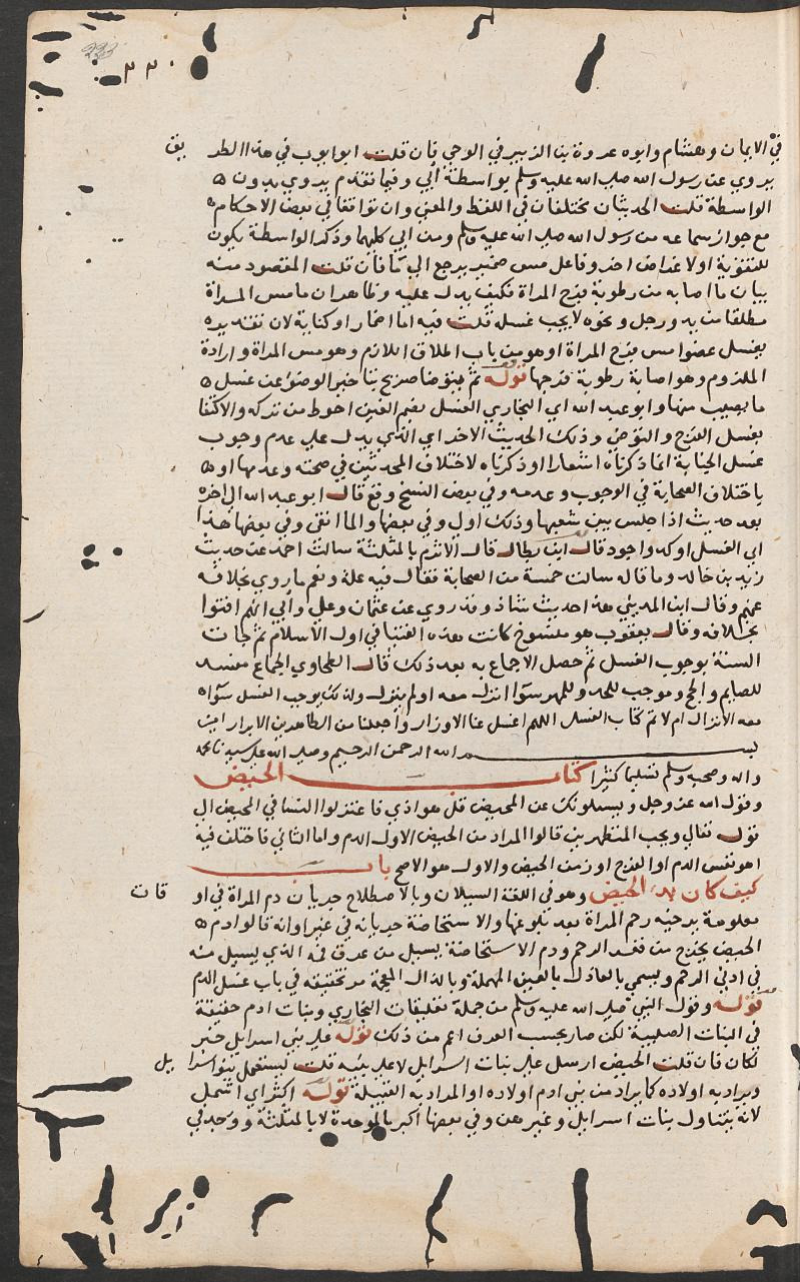 ٢٢٠
223
في الايمان وهشام وابوه عروة بن الزبير في الوحي فان قلت ابو ايوب في هذا الطر يق
يروي عن رسول الله صلى الله عليه وسلم بواسطة ابي وفيما تقدم يروي بدون
الواسطة قلت الحديثان مختلفان في اللفظ والمعني وان توافقا في بعض الاحكام
مع جواز سماعه من رسول الله صلى الله عليه وسلم ومن ابي كليهما وذكر الواسطة يكون
للتقوية او لاغراض اخر وفاعل مس ضمير يرجع الي ما فان قلت المقصود منه
بيان ما اصابه من رطوبة فرج المراة فكيف يدل عليه وظاهر ان ما مس المراة
مطلقا من يد ورجل ونحوه لا يجب غسله قلت فيه اما اضمار او كناية لان تقديره
يغسل عضوا مس فرج المراة او هو من باب اطلاق اللازم وهو مس المراة وارادة
الملزوم وهو اصابة رطوبة فرجها قوله ثم يتوضا صريح بتاخير الوضوء عن غسل
ما يصيب منها وابو عبد الله اي البخاري الغسل بضم الغين احوط من تركه والاكتفا
بغسل الفرج والتوضي وذلك الحديث الاخر اي الذي يدل علي عدم وجوب
غسل الجنابة انما ذكرناه اشعارا او ذكرناه لاختلاف المحدثين في صحته وعدمها او
باختلاف الصحابة في الوجوب وعدمه وفي بعض النسخ وقع قال ابو عبد الله الي اخره
بعد حديث اذا جلس بين شعبها وذلك اولي وفي بعضها والما انقي وفي بعضها هذا
اي الغسل اوكد واجود قال ابن بطال قال الاثرم بالمثلثة سالت احمد عن حديث
زيد بن خالد وما قاله سالت خمسة من الصحابة فقال فيه علة ونعم ما روي بخلافه
عنهم وقال ابن المديني هذا حديث شاذ وقد روي عن عثمان وعلي وابي انهم افتوا
بخلافه وقال يعقوب هو منسوخ كانت هذه الفتيا في اول الاسلام ثم جات
السنة بوجوب الغسل ثم حصل الاجماع به بعد ذلك قال الطحاوي الجماع مفسد
للصايم والحج وموجب للحد وللمهر سوا انزل معه او لم ينزل وكذلك يوجب الغسل سوا
معه الانزال ام لا تم كتاب الغسل اللهم اغسل عنا الاوزار واجعلنا من الطاهرين الابرار امين
بسم الله الرحمن الرحيم وصلى الله علي سيدنا محمد
واله وصحبه وسلم تسليما كثيرا كتاب الحيض
وقول الله عز وجل ويسئلونك عن المحيض قل هو اذي فاعتزلوا النسا في المحيض الي
قوله تعالي ويحب المتطهرين قالوا المراد من الحيض الاول الدم واما الثاني فاختلف فيه
اهو نفس الدم او الفرج او زمن الحيض والاول هو الاصح باب
كيف كان بدء الحيض وهو في اللغة السيلان وبالاصطلاح جريان دم المراة في او قات
معلومة يرخيه رحم المراة بعد بلوغها والاستحاضة جريانه في غير اوانه قالوا دم
الحيض يخرج من قعر الرحم ودم الاستحاضة يسيل من عرق فمه الذي يسيل منه
في ادني الرحم ويسمي بالعاذل بالعين المهملة وبالذال المعجمة مر تحقيقه في باب غسل الدم
قوله وقول النبي صلى الله عليه وسلم من جملة تعليقات البخاري وبنات ادم حقيقة
في البنات الصلبية لكن صار بحسب العرف اعم من ذلك قوله علي بني اسرايل خبر
لكان فان قلت الحيض ارسل علي بنات اسرايل لا علي بنيه قلت يستعمل بنو اسرا يل
ويراد به اولاده كما يراد من بني ادم اولاده او المراد به القبيلة قوله اكثر اي اشمل
لانه يتناول بنات اسرايل وغيرهن وفي بعضها اكبر بالموحدة لا بالمثلثة ووجد في